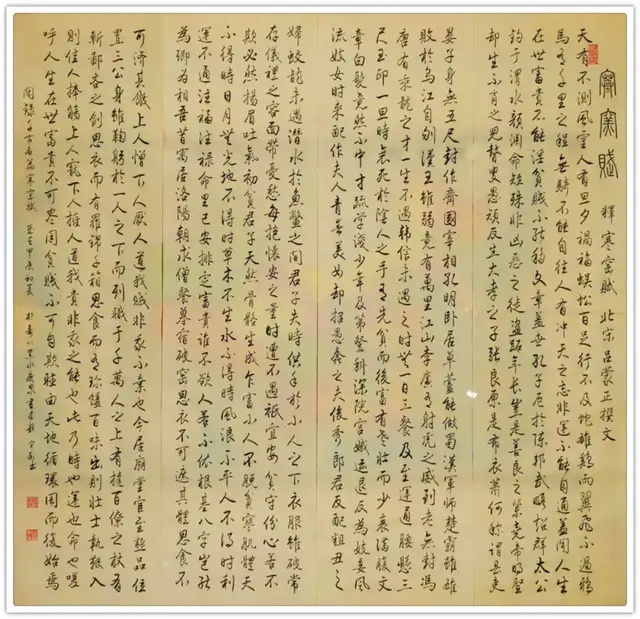 寒窯賦
釋寒窑賦 北宋吕蒙正撰文
天有不測風雲人有旦夕禍福蜈蚣百足行不及蛇雄鷄兩翼飛不過鴉
馬有千里之程無騎不能自往人有冲天之志非運不能自通蓋聞人生
在世富貴不能淫貧賤不能移文章蓋世孔子厄於陳邦武略超群太公
釣于渭水顏淵命短殊非凶惡之徒盜跖年長豈是善良之輩堯帝明聖
却生不肖之兒瞽叟愚頑反生大孝之子張良原是布衣蕭何稱謂县吏
晏子身無五尺封作齊國宰相孔明卧居草蘆能做蜀漢軍師楚霸雖雄
敗於烏江自刎漢王雖弱竟有萬里江山李廣有射虎之威到老無封馮
唐有乘龍之才一生不遇韓信未遇之時無一日三餐及至運通腰懸三
尺玉印一旦時衰死於陰人之手有先貧而後富有老壯而少衰滿腹文
章白髮竟然不中才疏學淺少年及第登科深院宮娥運退反為妓妾風
流妓女時来配作夫人青春美女却招愚蠢之夫俊秀郎君反配粗丑之
婦蛟龍未遇潛水於魚鱉之間君子失時供手於小人之下衣服雖破常
存儀禮之容面帶憂愁每抱懷安之量時遭不遇衹宜安貧守份心若不
欺必然揚眉吐氣初貧君子天然骨骼生成乍富小人不脱貧寒肌體天
不得時日月無光地不得時草木不生水不得時風浪不平人不得時利
運不通注福注禄命里已安排定富貴誰不欲人若不依根基八字豈能
為卿為相吾昔寓居洛陽朝求僧餐暮宿破窑思衣不可遮其體思食不
可濟其饑上人憎下人厭人道我賤非我不棄也今居廟堂官至極品位
置三公身雖鞠躬於一人之下而列職于千萬人之上有撻百僚之杖有
斬鄙吝之劍思衣而有羅錦千箱思食而有珍饈百味出則壯士執鞭入
則佳人捧觴上人寵下人擁人道我貴非我之能也此乃時也運也命也嗟
呼人生在世富貴不可盡用貧賤不可自欺聽由天地循環周而復始焉